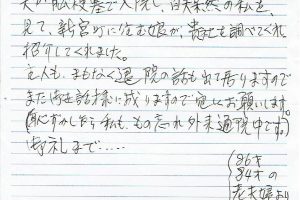 夫が脳梗塞で入院し、日々呆然の私を
見て、新宮町に住む娘が、貴社を調べてくれ
紹介してくれました。
主人も、まもなく退院の話も出て居りますので
また御世話様に成りますので宜しくお願いします。
(恥ずかしながら私も、もの忘れ外来通院中です。)
御礼まで・・・・
86才
84才の
老夫婦より